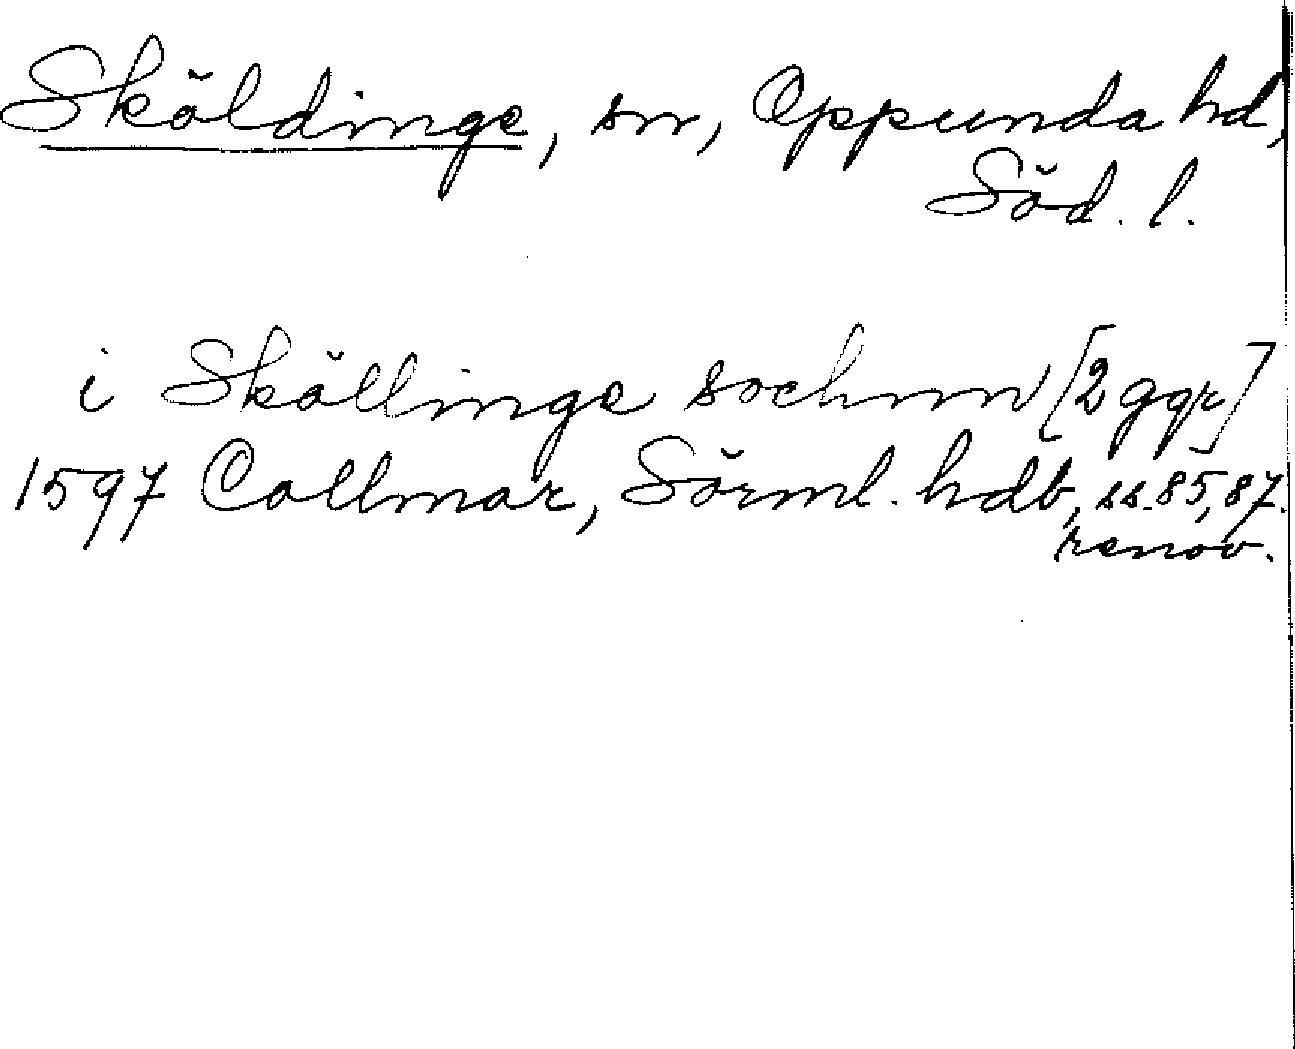 Sköldinge, sn, Oppunda hd,
Söd. l.
i Sköllinge sochnn [2 ggr]
1597 Collmar, Sörml. hdb, ss. 85, 87.
renov.